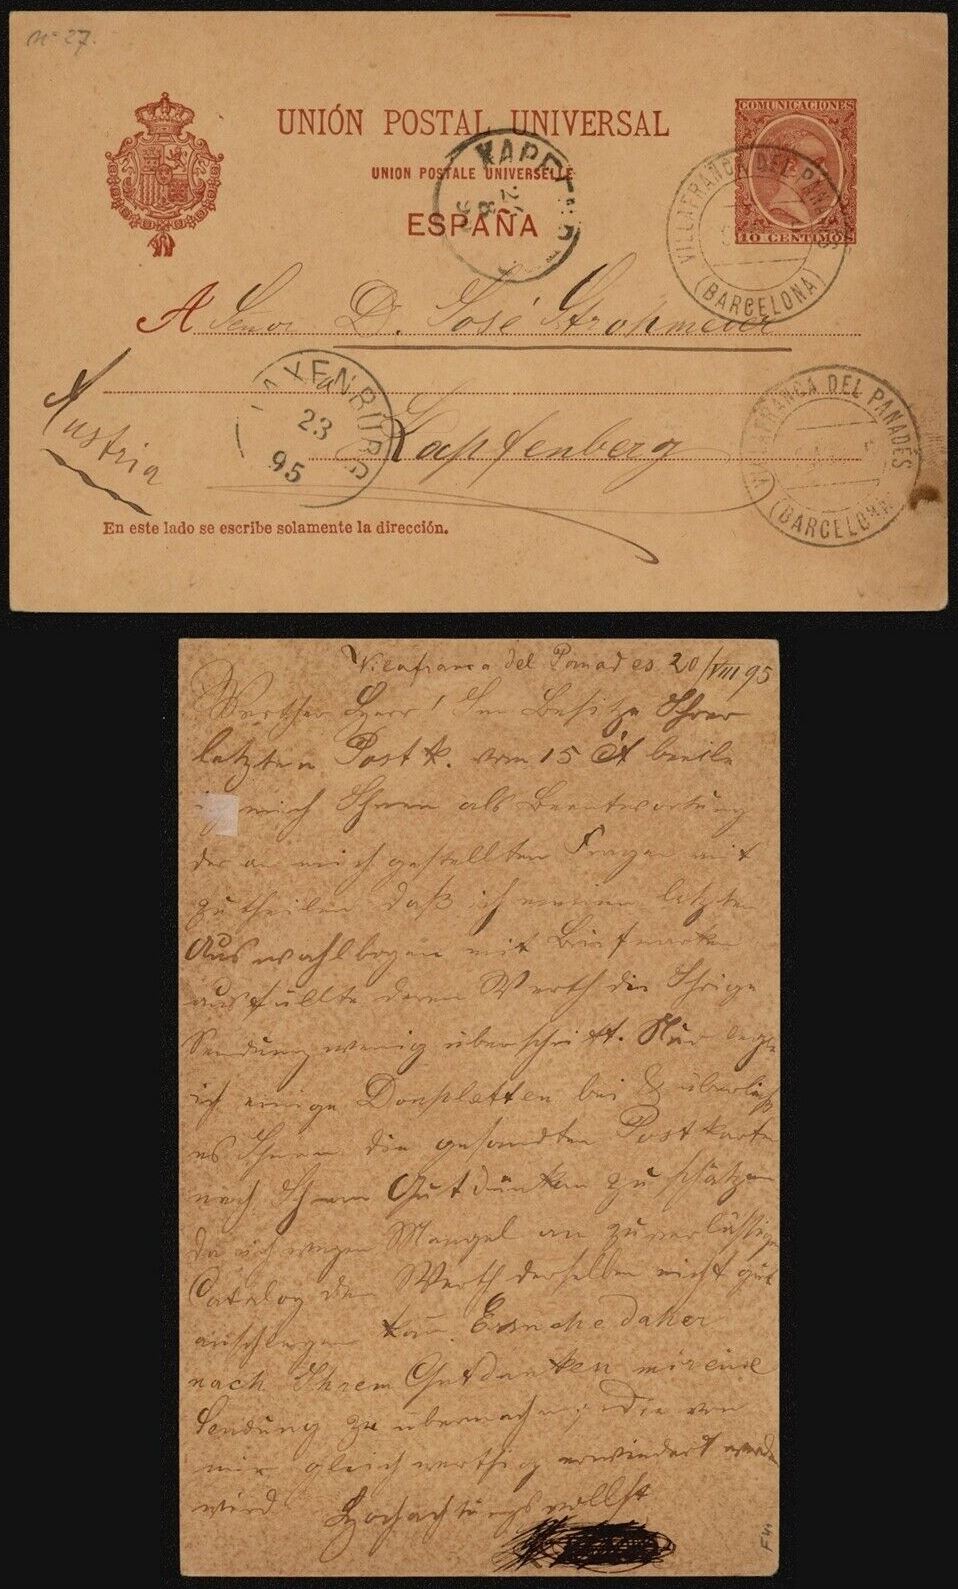 Nº 27.
UNIÓN POSTAL UNIVERSAL
UNION POSTALE UNIVERSELLE
ESPAÑA
COMUNICACIONES
10 CENTIMOS
VILLAFRANCA DEL PANADÉS
(BARCELONA)
KAPFENB
A Señor D. José Strohmeier
AXENBURG
23
95
a
Kapfenberg
Austria
VILLAFRANCA DEL PANADÉS
(BARCELONA)
En este lado se escribe solamente la dirección.
Vilafranca del Panades 20/VIII 95
Werther Herr! Im Besitze Ihrer
letzten Postk. vom 15 beeile
mich Ihnen als Beantwortung
der an mich gestellten Fragen mit
zutheilen daß ich meinen letzten
Auswahlbogen mit Briefmarken
ausfüllte deren Werth die Ihrige
Sendung wenig überschritt. Nur legte
ich einige Doupletten bei & überließ
es Ihnen die gesandten Postkarten
nach Ihrem Gutdünken zu schätzen
da ich wegen Mangel an zuverlässigen
Catalog den Werth derselben nicht gut
anschlagen kan. Ersuche daher
nach Ihrem Gutdunken mir eine
Sendung zu übermachen, die von
mir gleichwerthig erwiedert werden
wird Hochachtungsvollst